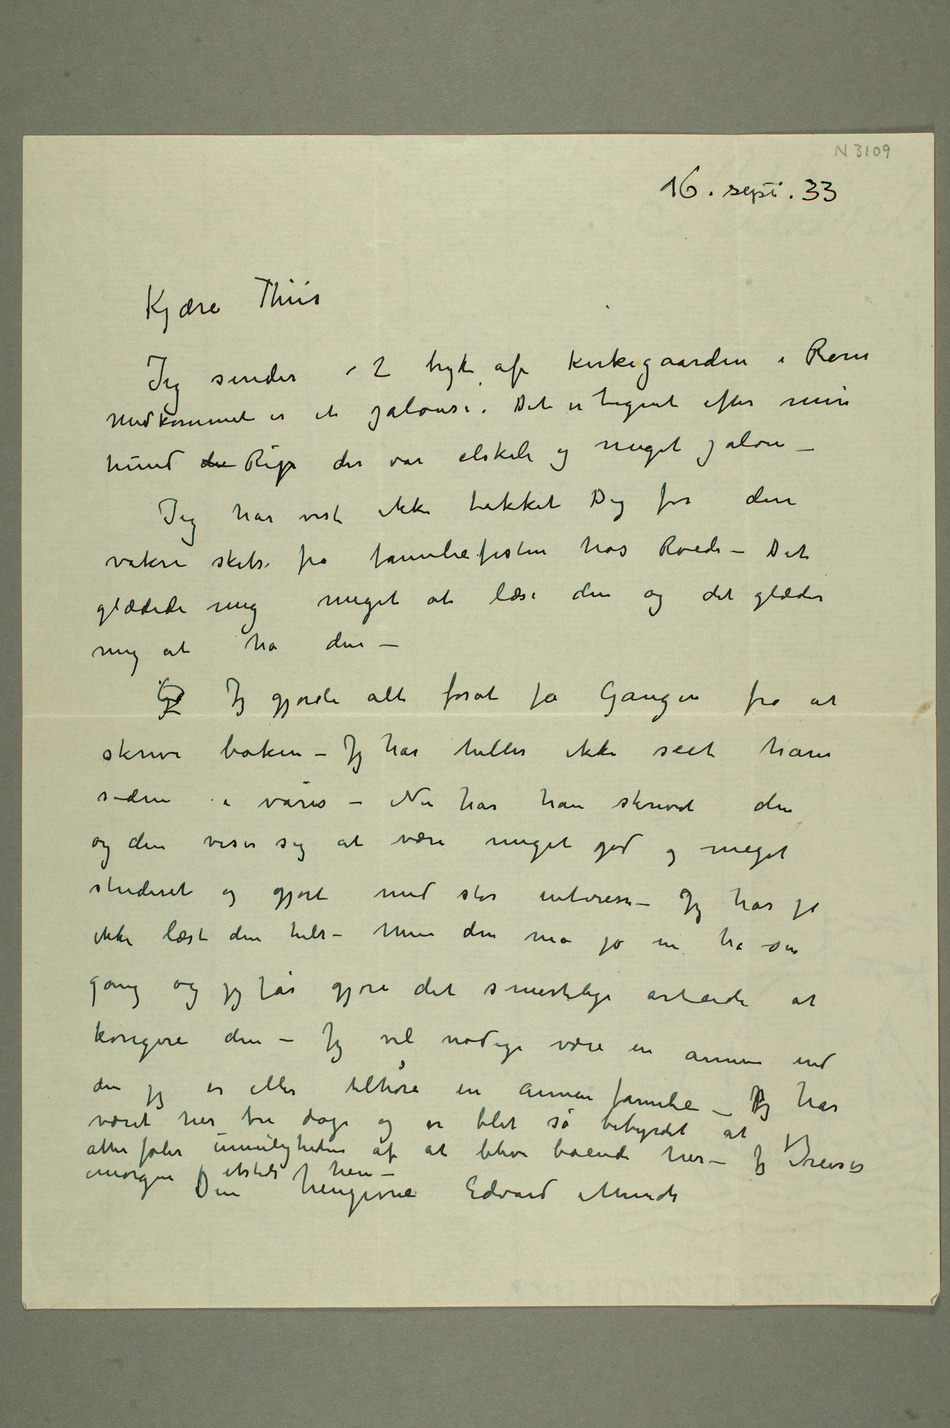 N 3109
16. sept. 33
Kjære Thiis
Jeg sender 2 tryk af Kirkegaarden i Rom
Medkommet er et jalousi. Det er tegnet efter min
hund Rip der var elskelig og meget jalou –
Jeg har vist ikke takket Dig for den
vakre skits fra familiefesten hos Roede – Det
glædede mig meget at læse den og det glæder
mig at ha den –
Jeg gjorde alt forat få Gaugen fra at
skrive boken – Jeg har heller ikke seet ham
siden i våres – Nu har han skrevet den
og den viser sig at være meget god og meget
studeret og gjort med stor interesse – Jeg har jo
ikke læst den hels – Men den må jo nu ha sin
gang og jeg får gjøre det smertelige arbeide at
korigere den – Jeg vil nødig være en annen end
den jeg er eller tilhøre en annen familie – Jeg har
været her tre dage og er blet så bebyrdet at jeg
atter føler umuligheden af at blive boende her – Jeg reiser
imorgen etsteds hen –
Din hengivne Edvard Munch